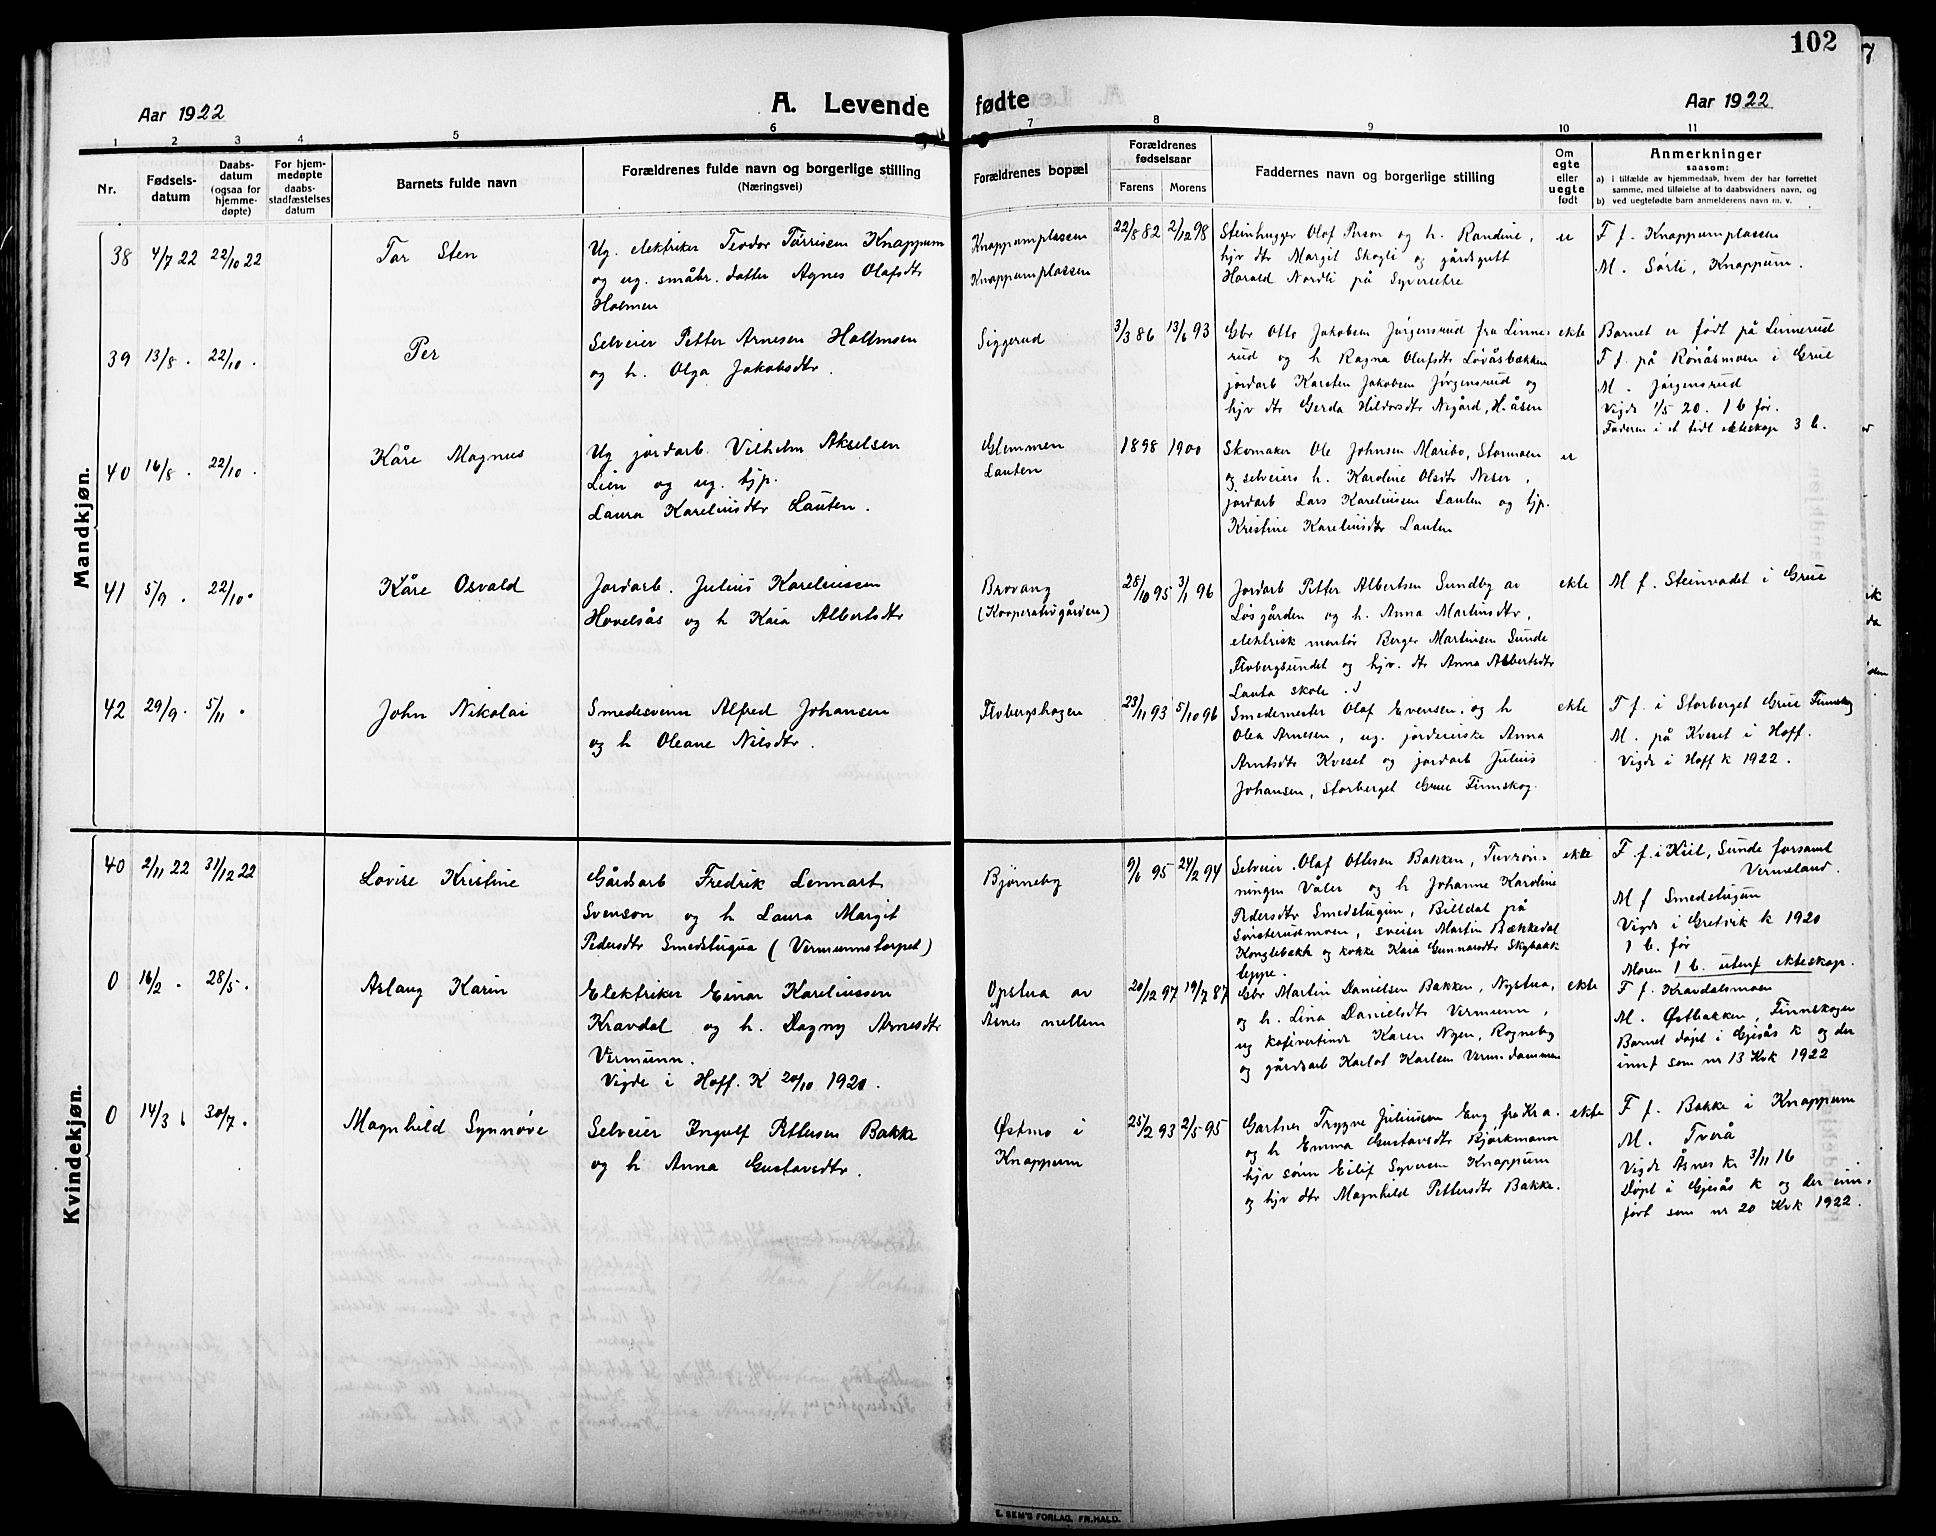 102
7
Aar 1922
A. Levende
fødte
Aar 1922
1 2 3 4 5 6 7 8 9 10 11
Nr.
Fødsels-
datum
Daabs-
datum
(ogsaa for
hjemme-
døpte)
For hjem-
medøpte
daabs-
stadfæstelses
datum
Barnets fulde navn
Forældrenes fulde navn og borgerlige stilling
(Næringsvei)
Forældrenes bopæl
Forældrenes
fødselsaar
Farens Morens
Faddernes navn og borgerlige stilling
Om
egte
eller
uegte
født
Anmerkninger
saasom:
a) i tilfælde av hjemmedaab, hvem der har forrettet
samme, med tilføielse af to daabsvidners navn, og
b) ved uegtefødte barn anmelderens navn m. v.
Mandkjøn.
38 4/7 22 22/10 22
Tor Sten
Ug. elektriker Teodor Tørrisen Knappum
og ug. småbr. datter Agnes Olafsdtr
Holmen
Knappumplassen
Knappumplassen
22/8 82 2/12 98
Steinhugger Olof Person og h. Randine,
hjv dtr Margit Skogli og gårdsgutt
Harald Nordli på Syversetre
u
F f. Knappumplassen
M. Sørli, Knappum.
39 13/8 . 22/10 .
Per
Selveier Petter Arnesen Holtmoen
og h. Olga Jakobsdtr.
Siggerud
3/3 86 13/6 93
Gbr Otto Jakobsen Jørgensrud fra Linne-
rud og h Ragna Olufsdtr Løvåsbækken
jordarb Karsten Jakobsen Jørgensrud og
hjv dtr Gerda Hildorsdtr Negård, H.åsen
ekte
Barnet er født på Linnerud
F f. på Rønåsmoen i Grue
M. Jørgensrud
Vigde 1/5 20. 1 b før.
Faderen i et tidl ekteskap 3 b.
40 16/8 . 22/10 .
Kåre Magnus
Ug jordarb. Vilhelm Akselsen
Lien og ug. tjp.
Laura Kareliusdtr Lauten.
Glemmen
Lauten
1898 1900
Skomaker Ole Johnsen Maribo, Stormoen
og selveiers h. Karoline Olsdtr Neser,
jordarb Lars Kareliussen Lauten og tjp.
Kristine Kareliusdtr Lauten
u
41 5/9 . 22/10 .
Kåre Osvald
Jordarb. Julius Kareliussen
Hovelsås og h Kaia Albertsdtr
Brovang
(Kooperativgården)
28/10 95 3/1 96
Jordarb Petter Albertsen Sundby av
Løsgården og h. Anna Martinsdtr,
elektrisk montør Berger Martinsen Sunde
Flobergsundet og hjv. dtr Anna Albertsdtr
Lauta skole.
ekte
M f. Steinvadet i Grue
42 29/9 . 5/11 .
John Nikolai
Smedesvenn Alfred Johansen
og h Oleane Nilsdtr.
Flobergshagen
23/11 93 5/10 96
Smedemester Olaf Evensen, og h
Olea Arnesen, ug. jordeierske Anna
Arntsdtr Kveset og jordarb Julius
Johansen, Storberget Grue Finnskog.
ekte
F f. i Storberget Grue Finnskog
M. på Kveset i Hoff.
Vigde i Hoff k 1922.
Kvindekjøn.
40 2/11 22 31/12 22
Lovise Kristine
Gårdsarb Fredrik Lennart
Svenson og h Laura Margit
Pedersdtr Smedstugua (Vermunnstorpet)
Bjørneby
9/6 95 24/2 94
Selveier. Olaf Ottesen Bakken, Tuvrøn-
ningen Våler og h Johanne Karoline
Pedersdtr Smedstugun, Billdal på
Sønsterudmoen, sveiser Martin Bækkedal
Konglebakk og kokke Kaia Gunnarsdtr Skybakk
teppe.
ekte
F f. i Kiil, Sunde forsamt
Vermeland.
M f Smedstugun
Vigde i Gretvik k 1920
1 b. før
Moren 1 b. utenf ekteskap.
0 16/2 . 28/5 .
Aslaug Karin
Elektriker Einar Kareliussen
Kravdal og h. Dagny Arnesdtr
Vermunn.
Vigde i Hoff. K 20/10 1920.
Opstua av
Åsnes mellem
20/12 97 19/7 87
Gbr Martin Danielsen Bakken, Nystua,
og h. Lina Danielsdtr Vermunn,
ug kafivertinde Karen Nyen, Rogneby
og gårdsarb Karlot Karlsen Verm.dammen
ekte
F f. Kravdalsmoen
M. Østbakken, Finnskogen
Barnet døpt i Gjesås k og der
innf som nr 13 Kvk 1922
0 14/3 . 30/7 .
Magnhild Synnøve
Selveier Ingulf Pettersen Bakke
og h Anna Gustavsdtr.
Østmo i
Knappum
25/2 93 2/5 95
Gartner Trygve Juliussen Eng fra Kra.
og h Emma Gustavsdtr Bjørkmann
hjv sønn Eilif Syversen Knappum
og hjv dtr Magnhild Pettersdtr Bakke.
ekte
F f. Bakke i Knappum
M. Tverå
Vigde Åsnes k 3/11 16
Døpt i Gjesås k og der inn-
ført som nr 20 Kvk 1922.
E. SEM'S FORLAG, FR.HALD.